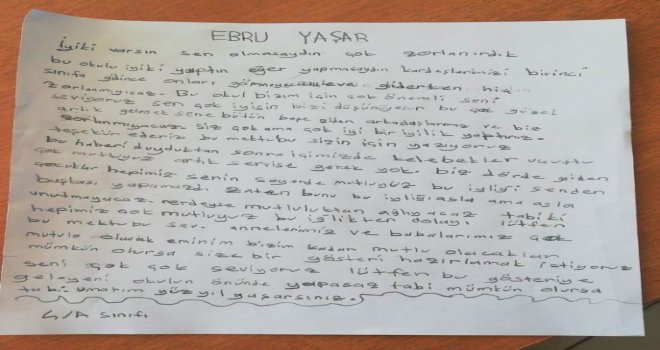 EBRU YAŞAR
iyiki varsın sen olmasaydın çok zorlanırdık
bu okulu iyiki yaptın eğer yapmasaydın kardeşlerimizi birinci
sınıfa gidince onları giderken hiç
zorlanmıycaz. Bu okul bizim için çok önemli seni
seviyoruz sen çok iyisin bizi düşünüyosun bu çok güzel
artık gelecek sene bütün beşe giden arkadaşlarımız ve biz
zorlanmıycaz. siz çok ama çok iyi bir iyilik yaptınız.
teşekür ederiz bu mektubu sizin için yazıyoruz
bu haberi duyduktan sonra içimizde kelebekler uçuştu
çok mutluyuz artık servise gerek yok. biz dörde giden
çocuklar hepimiz senin sayende mutluyuz bu iyliği senden
başkası yapamazdı. zaten bunu bu iyliği asla ama asla
unutmayacaz. nerdeyse mutluluktan ağlıyacaz tabiki
hepimiz çok mutluyuz bu iylikten dolayı lütfen
bu mektubu sev. annelerimiz ve babalarımız çok
mutulo olacak eminim bizim kadar mutlu olacaklar
mümkün olursa size bir gösteri hazırlamak istiyoruz
seni çok çok seviyoruz lütfen bu gösteriye
gel okulun önünde yapacaz tabi mümkün olursa
tabi umarım yüz yıl yaşarsınız.
4/A sınıfı